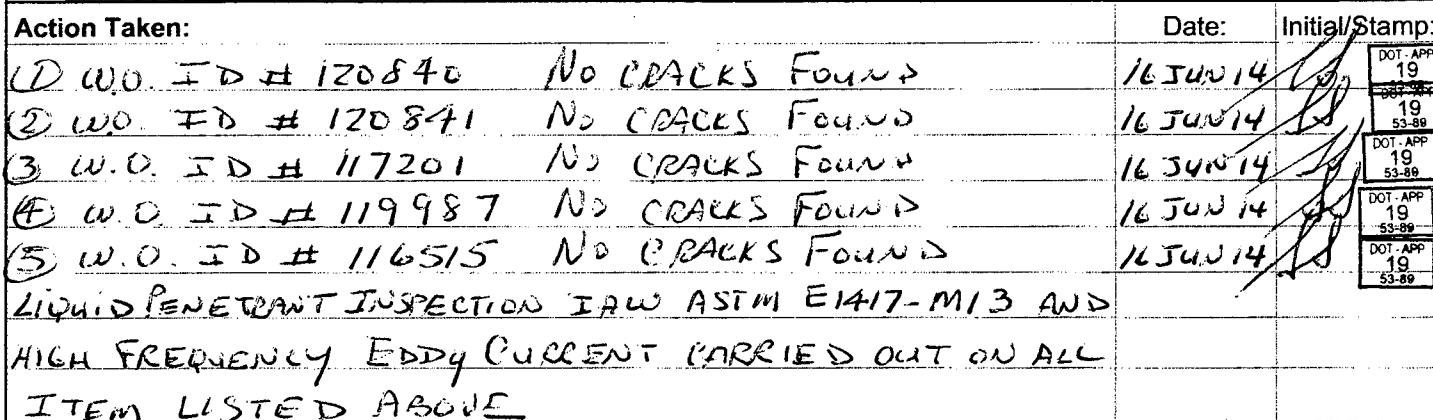 Action Taken: Date: Initial/Stamp:
① W.O. ID # 120840 NO CRACKS FOUND 16 JUN 14 DOT-APP 19
② W.O. ID # 120841 NO CRACKS FOUND 16 JUN 14 19 53-89
③ W.O. ID # 117201 NO CRACKS FOUND 16 JUN 14 DOT-APP 19 53-89
④ W.O. ID # 119987 NO CRACKS FOUND 16 JUN 14 DOT-APP 19 53-89
⑤ W.O. ID # 116515 NO CRACKS FOUND 16 JUN 14 DOT-APP 19 53-89
LIQUID PENETRANT INSPECTION IAW ASTM E1417-M13 AND
HIGH FREQUENCY EDDY CURRENT CARRIED OUT ON ALL
ITEM LISTED ABOVE